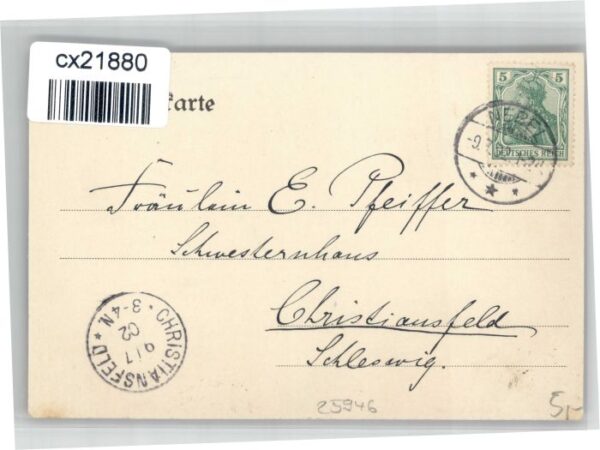 cx21880
karte
5 5
DEUTSCHES REICH
Fräulein E. Pfeiffer
Schwesternhaus
Christiansfeld
Schleswig.
CHRISTIANSFELD
9/1
02
3-4N
25946
5,-